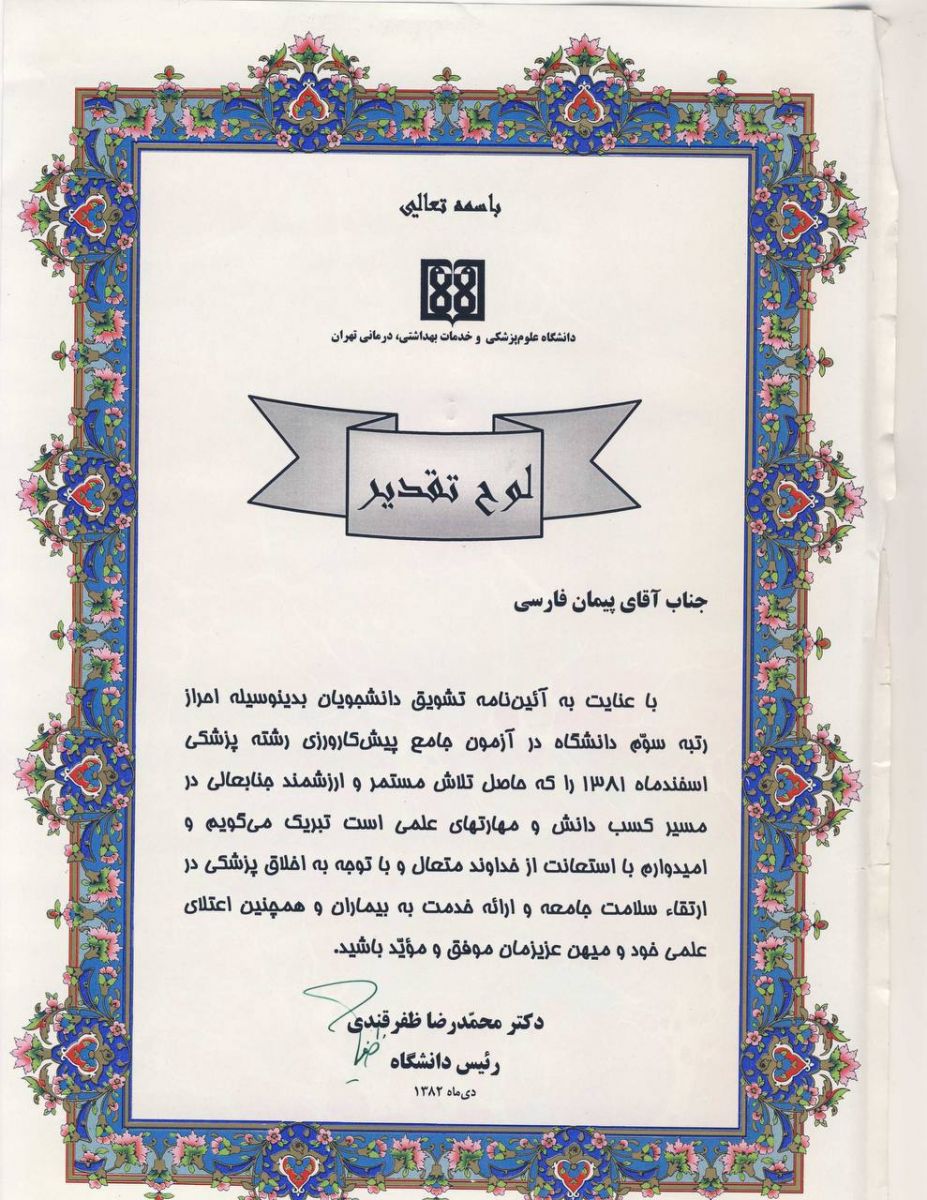 باسمه تعالی
دانشگاه علوم‌پزشکی و خدمات بهداشتی، درمانی تهران
لوح تقدیر
جناب آقای پیمان فارسی
با عنایت به آئین‌نامه تشویق دانشجویان بدینوسیله احراز
رتبه سوّم دانشگاه در آزمون جامع پیش‌کارورزی رشته پزشکی
اسفندماه ۱۳۸۱ را که حاصل تلاش مستمر و ارزشمند جنابعالی در
مسیر کسب دانش و مهارتهای علمی است تبریک می‌گویم و
امیدوارم با استعانت از خداوند متعال و با توجه به اخلاق پزشکی در
ارتقاء سلامت جامعه و ارائه خدمت به بیماران و همچنین اعتلای
علمی خود و میهن عزیزمان موفق و مؤیّد باشید.
دکتر محمّدرضا ظفرقندی
رئیس دانشگاه
دی‌ماه ۱۳۸۲